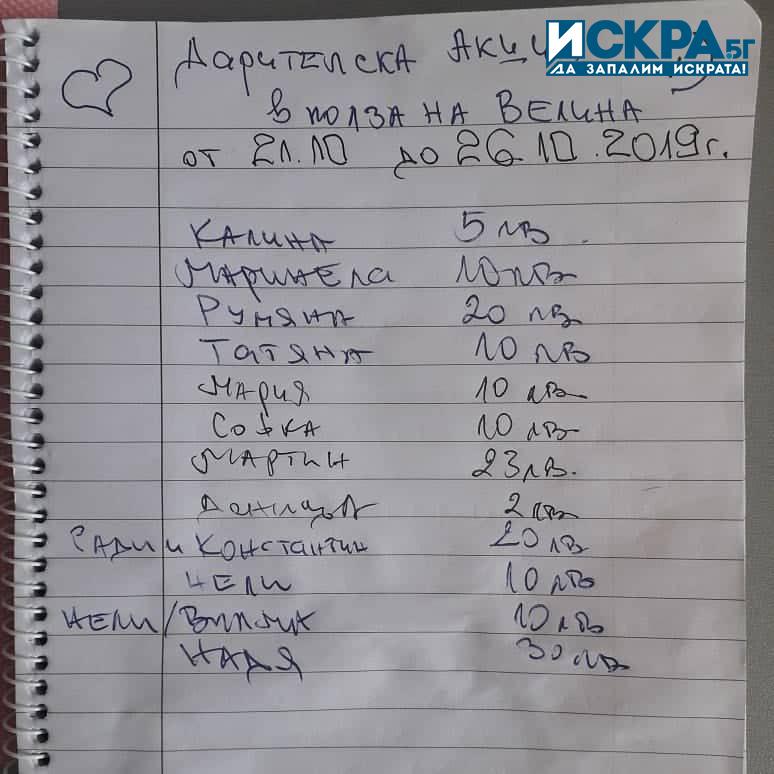 ИСКРА.БГ
ДА ЗАПАЛИМ ИСКРАТА!
ДАРИТЕЛСКА
В ПОЛЗА НА ВЕЛИНА
ОТ 21.10 ДО 26.10.2019 г.
КАЛИНА 5 лв.
МАРИНЕЛА 10 лв
РУМЯНА 20 лв
ТАТЯНА 10 лв
МАРИЯ 10 лв
СОФКА 10 лв
МАРТИН 23 лв.
2 лв
РАДИ И КОНСТАНТИН 20 лв
НЕЛИ 10 лв
НЕЛИ/ВИЛМА 10 лв
НАДЯ 30 лв